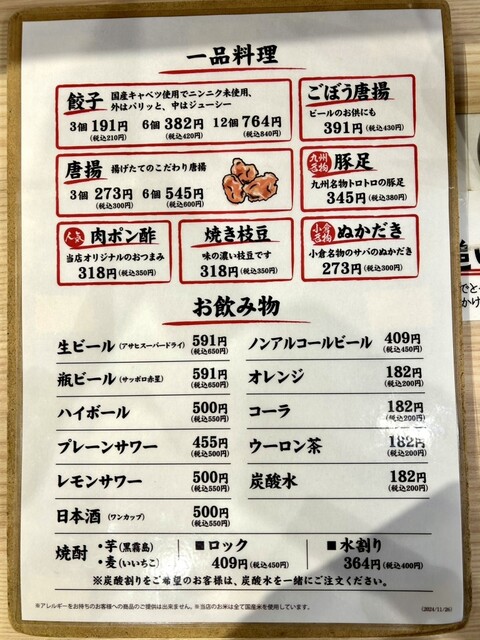 一品料理
餃子 国産キャベツ使用でニンニク未使、
外はパリッと、中はジューシー
3個 191円 6個 382円 12個 764円
(税込210円) (税込420円) (税込840円)
ごぼう唐揚
ビールのお供にも
391円 (税込430円)
唐揚 揚げたてのこだわり唐揚
3個 273円 6個 545円
(税込300円) (税込600円)
九州名物 豚足
九州名物トロトロの豚足
345円 (税込380円)
人気 肉ポン酢
当店オリジナルのおつまみ
318円 (税込350円)
焼き枝豆
味の濃い枝豆です
318円 (税込350円)
小倉名物 ぬかだき
小倉名物のサバのぬかだき
273円 (税込300円)
お飲み物
生ビール (アサヒスーパードライ) 591円
(税込650円)
瓶ビール (サッポロ赤星) 591円
(税込650円)
ハイボール 500円
(税込550円)
プレーンサワー 455円
(税込500円)
レモンサワー 500円
(税込550円)
日本酒 (ワンカップ) 500円
(税込550円)
ノンアルコールビール 409円
(税込450円)
オレンジ 182円
(税込200円)
コーラ 182円
(税込200円)
ウーロン茶 182円
(税込200円)
炭酸水 182円
(税込200円)
焼酎 ・芋(黒霧島)
・麦(いいちこ)
■ロック
409円 (税込450円)
■水割り
364円 (税込400円)
※炭酸割りをご希望のお客様は、炭酸水を一緒にご注文ください。
※アレルギーをお持ちのお客様への商品のご提供は出来ません。※当店のお米は全て国産米を使用しています。
(2024/11/26)